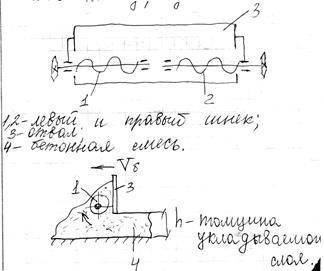 3
1
2
1,2- левый и правый шнек;
3- отвал.
4- бетонная смесь.
Vб
1
3
h- толщина
укладываемого
слоя.
4